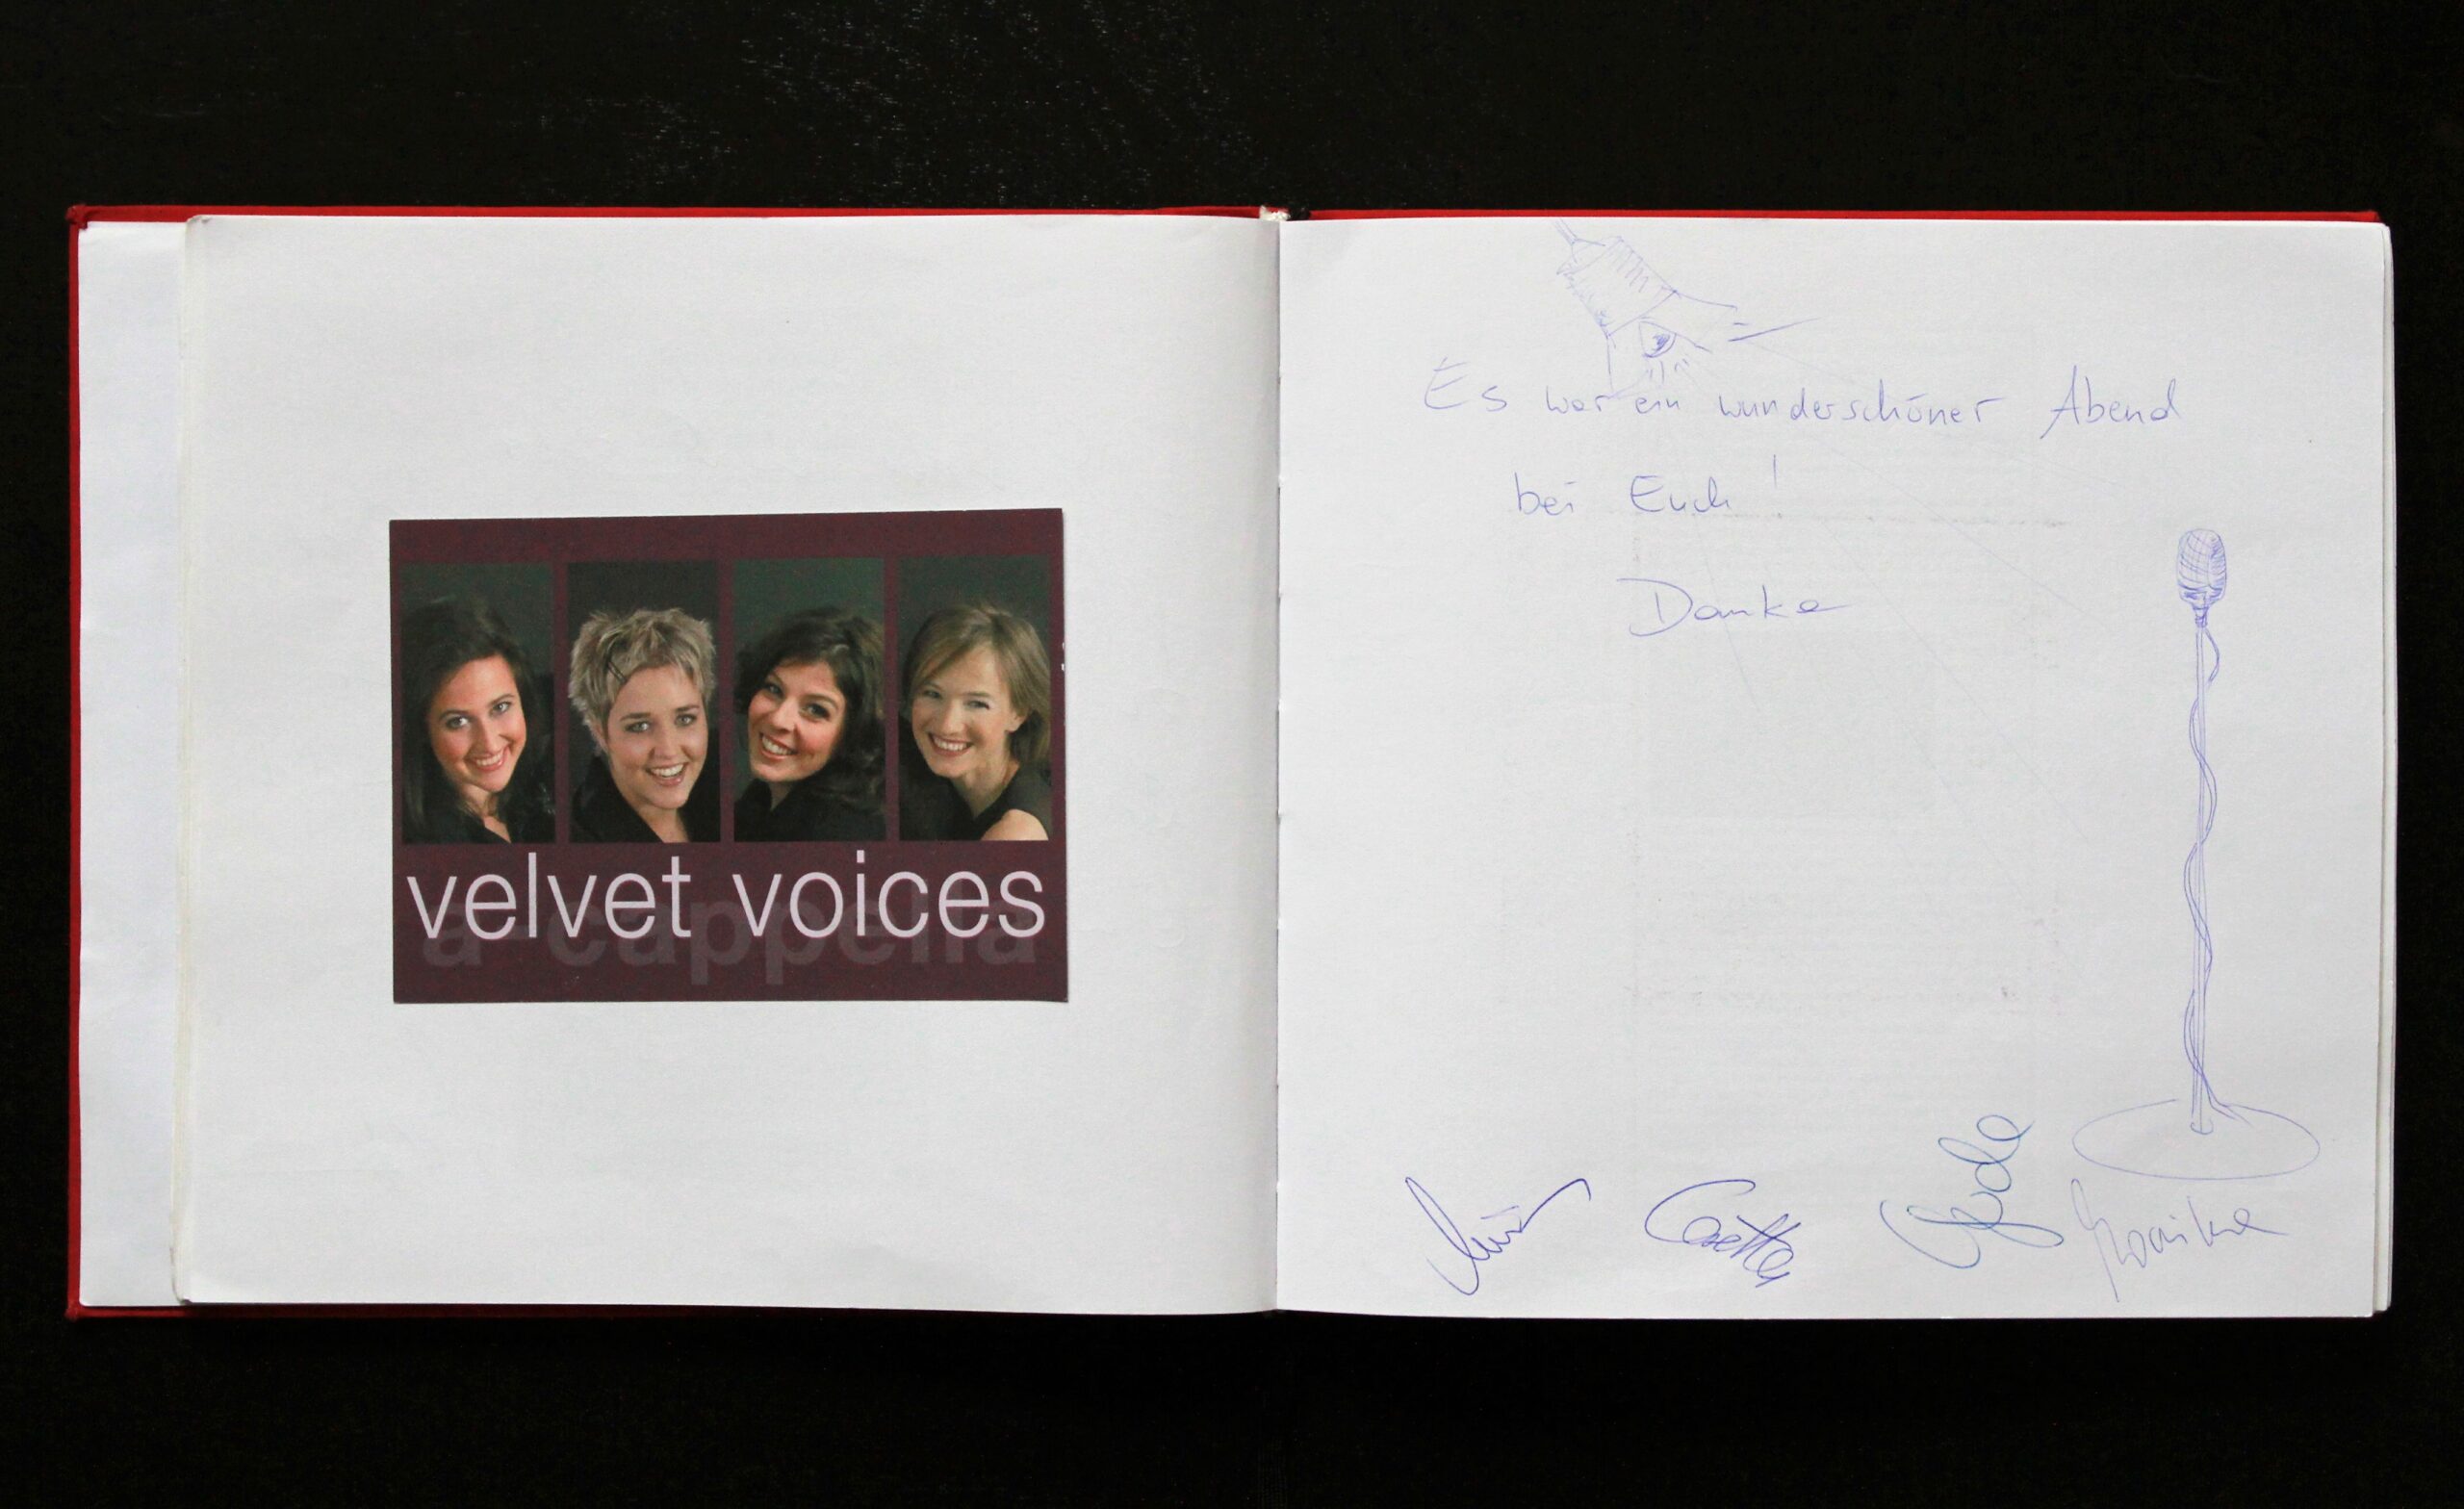 velvet voices
a-cappella
Es war ein wunderschöner Abend
bei Euch!
Danke